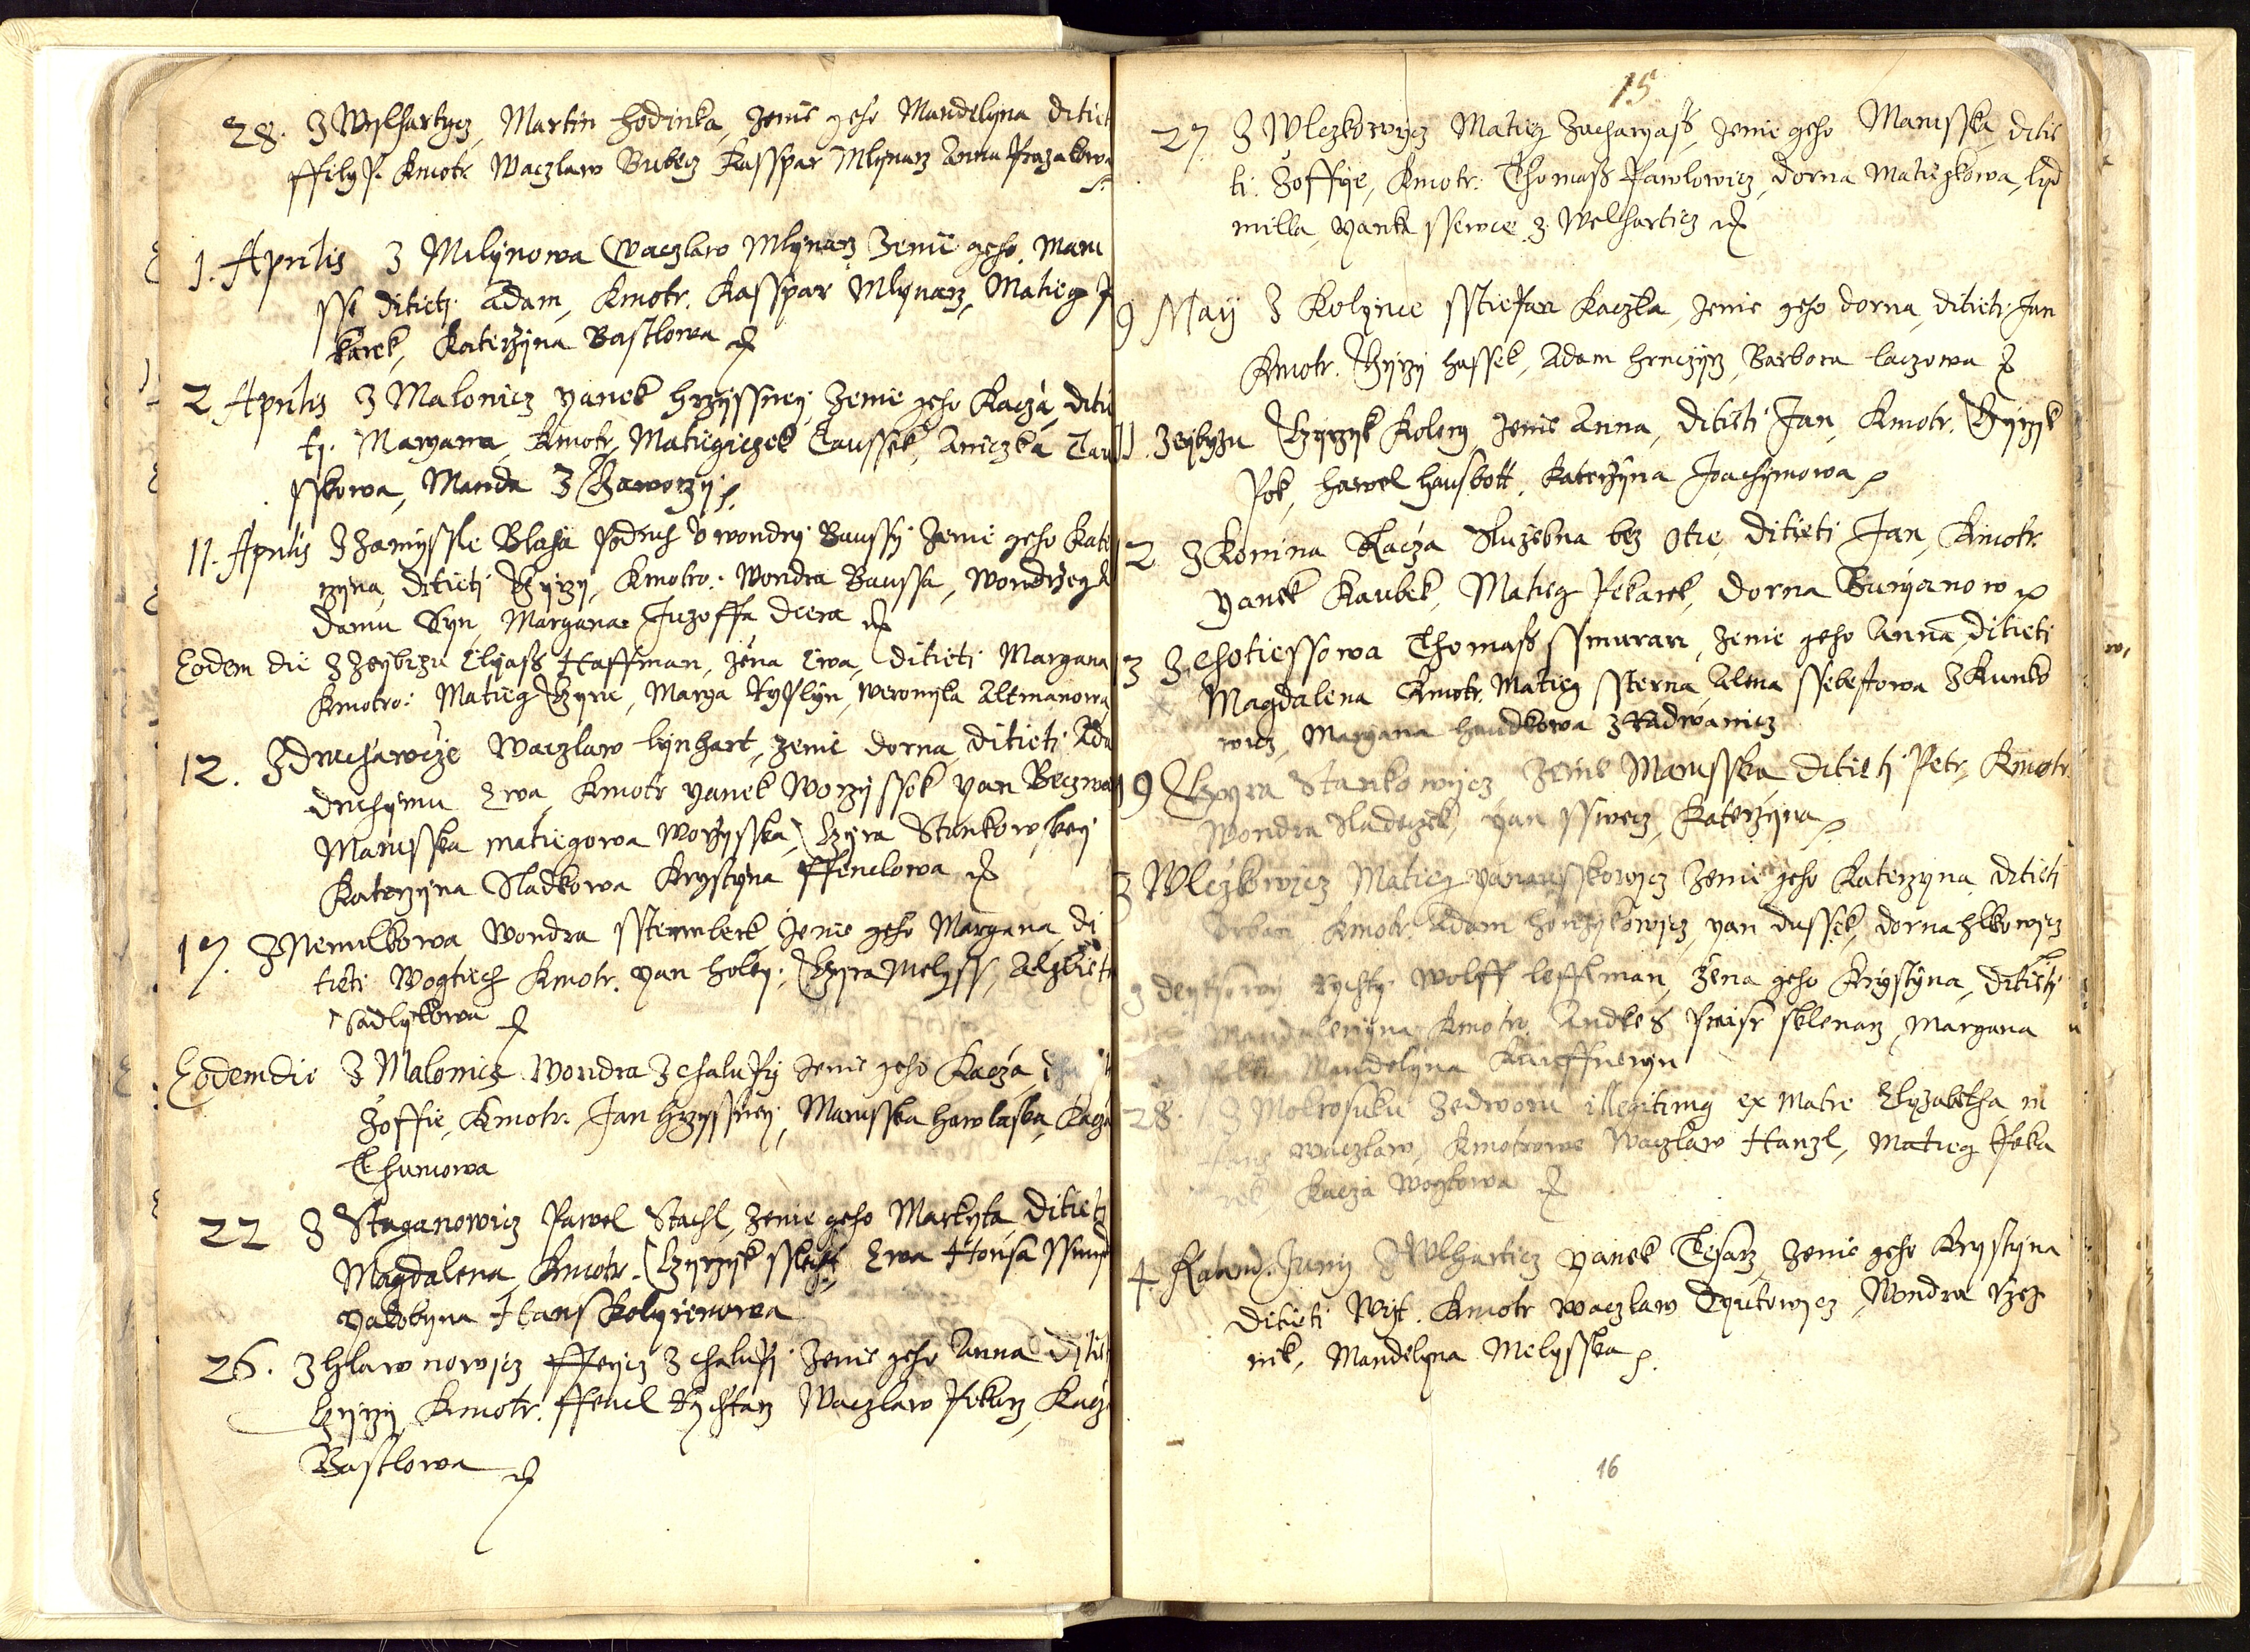 28. Z Wylhartycz, Martin Hodinka, Zenie geho Mandelyna ditiet
ffilyp. Kmotr. Waczlaw Bubecz Kasspar Mlynarz Anna Prazakowa
1. Aprilis Z Milynowa Waczlaw Mlynarz Zenie geho Maru
sse ditieti Adam, Kmotr. Kasspar Mlynarz, Matieg P
karek, Katerzyna Bastlowa
2 Aprilis Z Malonicz yanek hrzyssney, Zenie geho Kacza, diti
ti. Maryana, Kmotr. Matiegiczek Taussek, Aniczka Tau
sskowa, Manda Z Jaworzy
11. Aprilis Z Zamyssle Blaha Podruh v wondry Baussy Zenie geho Kate
rzyna, ditieti Gyrzy, Kmotro: Wondra Baussa, Wondrzeg A
damu Syn, Margana Juzoffa dcera
Eodem die Z Zeybyzu Elyass Haffman, Zena Ewa, ditieti Margana
Kmotro: Matieg Gyra, Marga Ryslyn, Weronyka Altmanowa
12. Z Druhawcze Waczlaw Lynhart, Zenie dorna, ditieti Ada
druhymu Ewa, Kmotr yanek Worzyssek yan Beczwa
Marusska matiegowa Worzysska, Gyra Stankow, key
Katerzyna Sladkowa Krystyna ffenclowa
17. Z Nemilkowa Wondra sstermberk, Zenie geho Margana, di
tieti Wogtiech Kmotr. yan holey, Gyra Melyss, Alzbieta
Sadlykowa
Eodem die Z Malonicz Wondra Z chalupy Zenie geho Kacza,
Zoffie, Kmotr. Jan Hrzyssney, Marusska hawlaska, Kacza
Thumowa
22 Z Straganowicz Pawel Stachl, Zenie geho Markyta, ditieti
Magdalena Kmotr. Gyrzyk Ewa Housa
yakobyna Hans Kolyrerowa
26. Z Hlawnowicz ffeycz Z chalupy Zenie geho Anna Ditiet
Gyrzy, Kmotr. ffencl Rychtarz Waczlaw Pekarz, Kacza
Bastlowa
15
27 Z Wlczkowycz Matieg Zacharyass, Zenie geho Marusska, ditie
ti. Zoffye, Kmotr: Thomass Pawlowicz, dorna Matiegkowa, lyd
milla, yanka ssewce z Welharticz
9 May Z Kolynce sstiepan Kaczka, Zenie geho dorna, ditieti Jan
Kmotr. Gyrzy hassek, Adam hrnczyrz, Barbora laczowa
11. Zeybyzu Gyrzyk Kolerz, Zenie Anna, ditieti Jan, Kmotr. Gyrzyk
Pok, hawel hausbott, Katerzyna Joachymowa
2 Z Konina Kacza Sluzebna bez Otce, ditieti Jan, Kmotr.
yanek Kaubek, Matieg Pekarek, dorna Buryanow
3 Z Chotiessowa Thomass ssmuran, Zenie geho Anna, ditieti
Magdalena Kmotr. Matieg ssterna, Alena ssebestowa Z Kunko
wicz, Maryana haudkowa z Radwanicz
19 Gyra Stankowycz Zenie Marusska ditieti Petr, Kmotr.
Wondra Sladeczek, yan sswecz, Katerzyna
3 Wlczkowicz Matieg yanausskowycz Zenie geho Katerzyna ditieti
Urban Kmotr. Adam honzykowycz, yan dussek, dorna hlkowycz
z deyssowy rychty Wolff leffkman, Zena geho Krystyna, ditieti
Mandalenyna Kmotr. Andres Praisr sklenarz, Margana
Mandelyna Kurffnerzyn
28. Z Mokrosuku Zedworu illegitimy ex Matre Elyzabetha in
fans Waczlaw, Kmotrowe Waczlaw Hanzl, Matieg Peka
rek, Kacza Wogtowa
4. Kalend. Juny Z Wlharticz yanek Tesarz, Zenie geho Krystyna
ditieti Wyt. Kmotr Waczlaw Tyutowycz, Wondra rzez
nik, Mandelyna Melysska
16